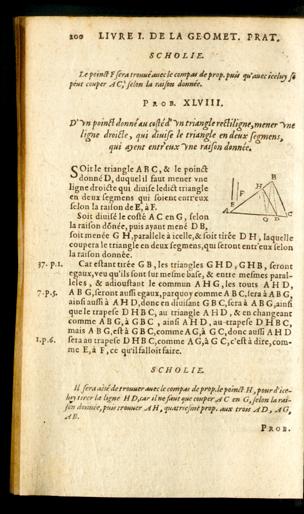 200 LIVRE I. DE LA GEOMET. PRAT.
SCHOLIE.
Le poinct F sera trouué auec le compas de prop. puis qu'auec iceluy se
peut couper AC, selon la raison donnée.
PROB. XLVIII.
D'vn poinct donné au costé d'vn triangle rectiligne, mener vne
ligne droicte, qui diuise le triangle en deux segmens,
qui ayent entr'eux vne raison donnée.
SOit le triangle ABC, & le poinct
donné D, duquel il faut mener vne
ligne droicte qui diuise ledict triangle
en deux segmens qui soient entr'eux
selon la raison de E, à F.
Soit diuisé le costé AC en G, selon
la raison dōnée, puis ayant mené DB,
soit menée GH, parallele à icelle, & soit tirée DH, laquelle
coupera le triangle en deux segmens, qui seront entr'eux selon
la raison donnée.
37. p. 1. Car estant tirée GB, les triangles GHD, GHB, seront
egaux, veu qu'ils sont sur mesme base, & entre mesmes paral-
leles, & adioustant le commun AHG, les touts AHD,
7. p. 5. ABG, seront aussi egaux, parquoy comme ABC, sera à ABG,
ainsi aussi à AHD, donc en diuisant GBC, sera à ABG, ainsi
que le trapeze DHBC, au triangle AHD, & en changeant
comme ABG, à GBC, ainsi AHD, au trapeze DHBC,
mais ABG, est à GBC, comme AG, à GC, donc aussi AHD
1. p. 6. sera au trapeze DHBC, comme AG, à GC, c'est à dire, com-
me E, à F, ce qu'il falloit faire.
SCHOLIE.
Il sera aisé de trouuer auec le compas de prop. le poinct H, pour d'ice-
luy tirer la ligne HD, car il ne faut que couper AC en G, selon la rai-
son donnée, puis trouuer AH, quatriesme prop. aux trois AD, AG,
AB.
PROB.